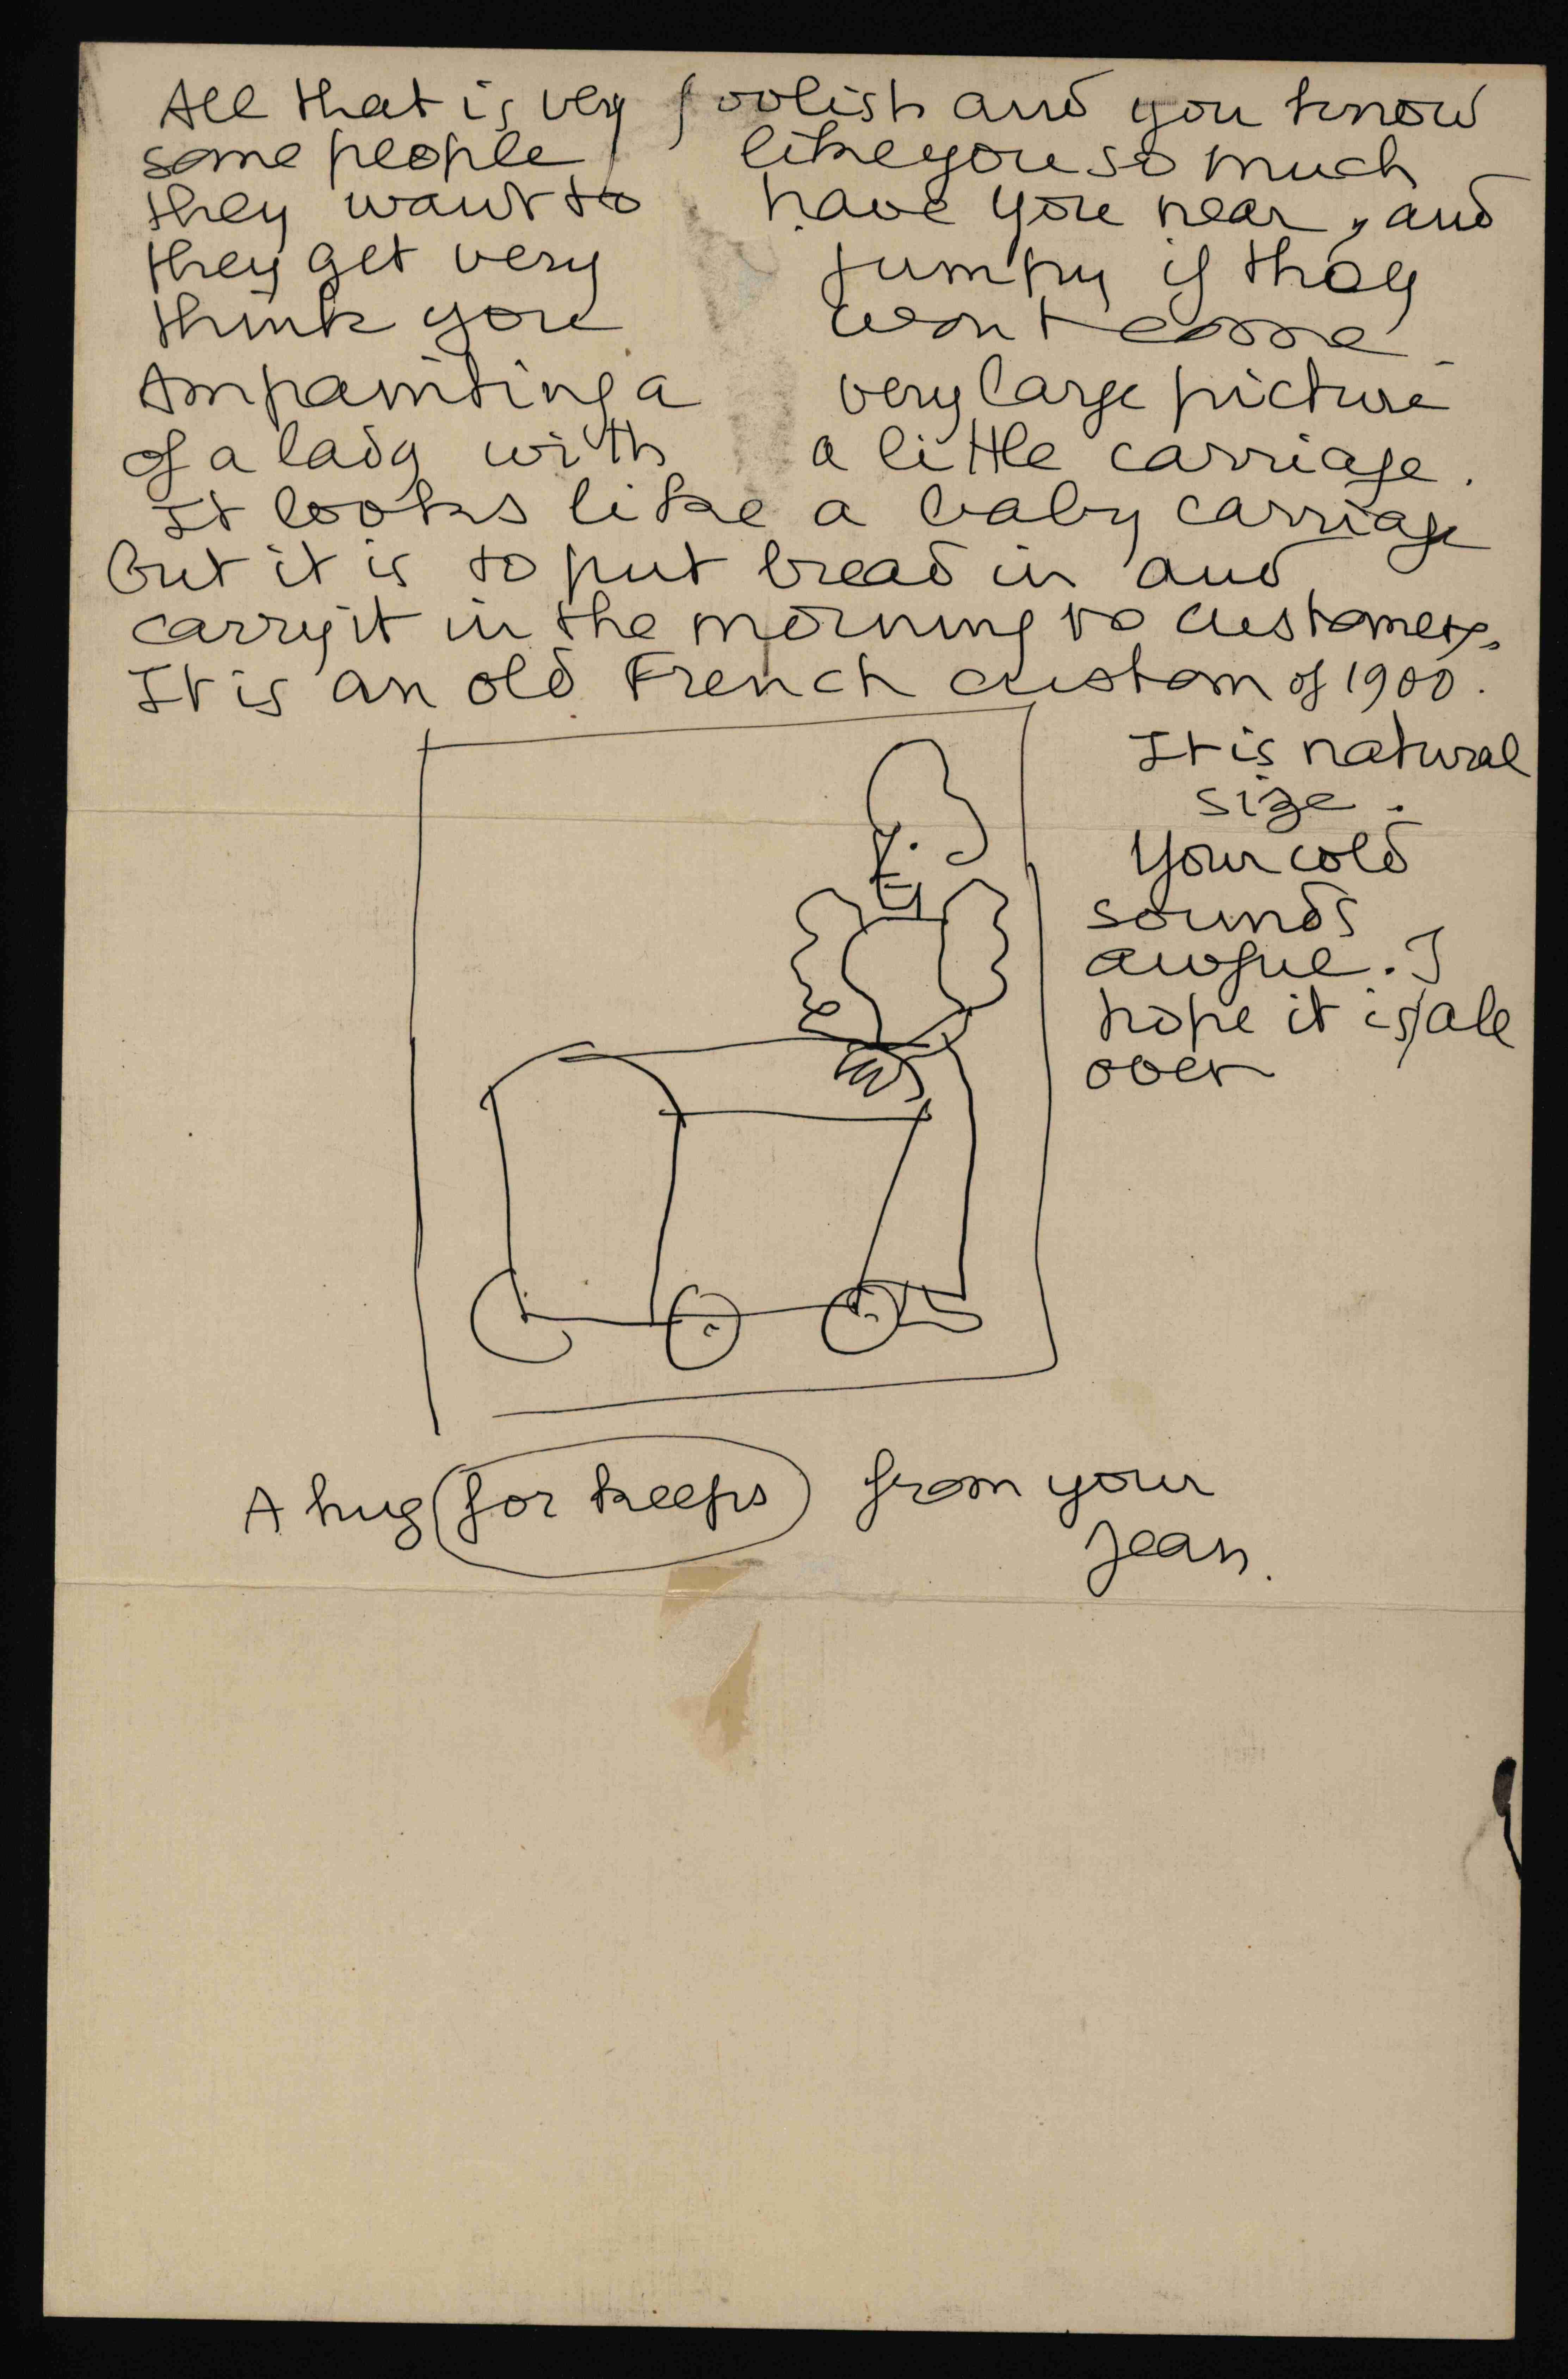 All that is very foolish and you know
some people like you so much
they want to have you near, and
they get very jumpy if they
think you wont come.
Am painting a very large picture
of a lady with a little carriage.
It looks like a baby carriage
but it is to put bread in and
carry it in the morning to customers.
It is an old French custom of 1900.
It is natural
size.
Your cold
sounds
awful. I
hope it is all
over
A hug for keeps from your
Jean.